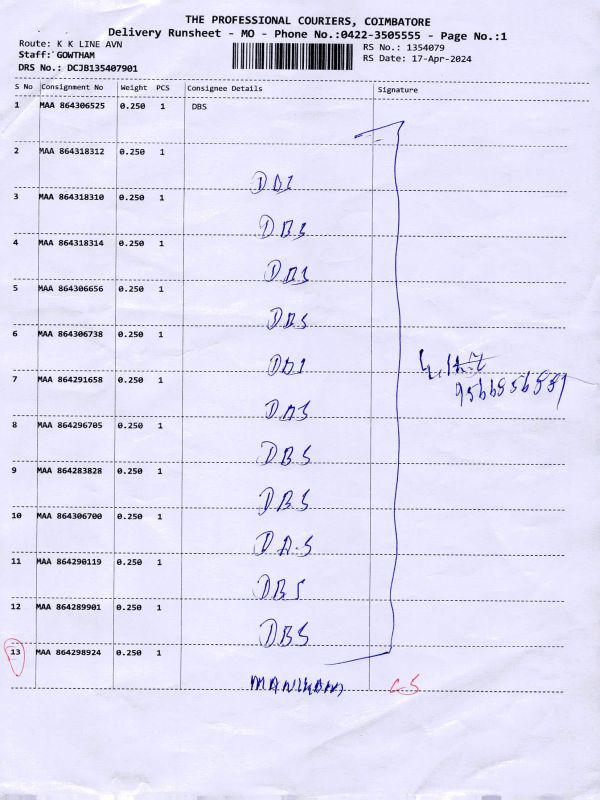 THE PROFESSIONAL COURIERS, COIMBATORE
Delivery Runsheet - MO - Phone No.:0422-3505555 - Page No.:1
Route: K K LINE AVN
RS No.: 1354079
Staff: GOWTHAM
RS Date: 17-Apr-2024
DRS No.: DCJB135407901
S No Consignment No Weight PCS Consignee Details Signature
1 MAA 864306525 0.250 1 DBS
2 MAA 864318312 0.250 1
DBS
3 MAA 864318310 0.250 1
DBS
4 MAA 864318314 0.250 1
DBS
5 MAA 864306656 0.250 1
DBS
6 MAA 864306738 0.250 1
DBS
7 MAA 864291658 0.250 1
DBS
8 MAA 864296705 0.250 1
DBS
9 MAA 864283828 0.250 1
DBS
10 MAA 864306700 0.250 1
DBS
11 MAA 864290119 0.250 1
DBS
12 MAA 864289901 0.250 1
DBS
13 MAA 864298924 0.250 1